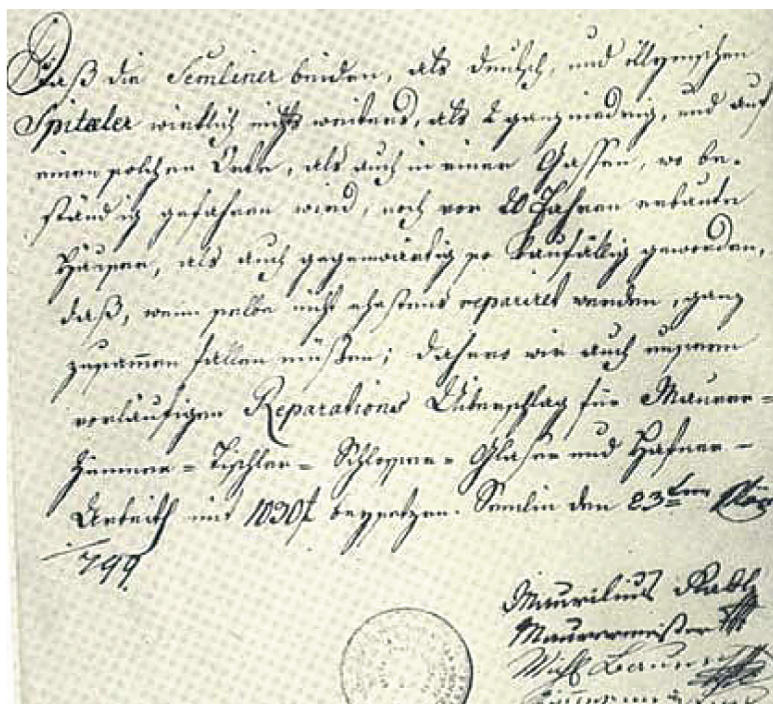 Daß die Semliner beiden, als deutsch, und illyrischen
Spitæler wirklich nichts weiters, als 2 ganz niedrig, und auf
einen solchen Orte, als auch in einer Gassen, wo be-
ständig gefahren wird, noch vor 20 Jahren erbaute
Häuser, als auch gegenwärtig so baufällig geworden,
daß, wenn selbe nicht ehestens repariret werden, ganz
zusammen fallen müßen; dahero wir auch unseren
vorläufigen Reparations Überschlag für Maurer=
Zimmer= Tischler= Schlosser= Glaser und Hafner-
Arbeith mit 1030f beysetzen. Semlin den 23ten
1799.
Maurilius
Maurermeister